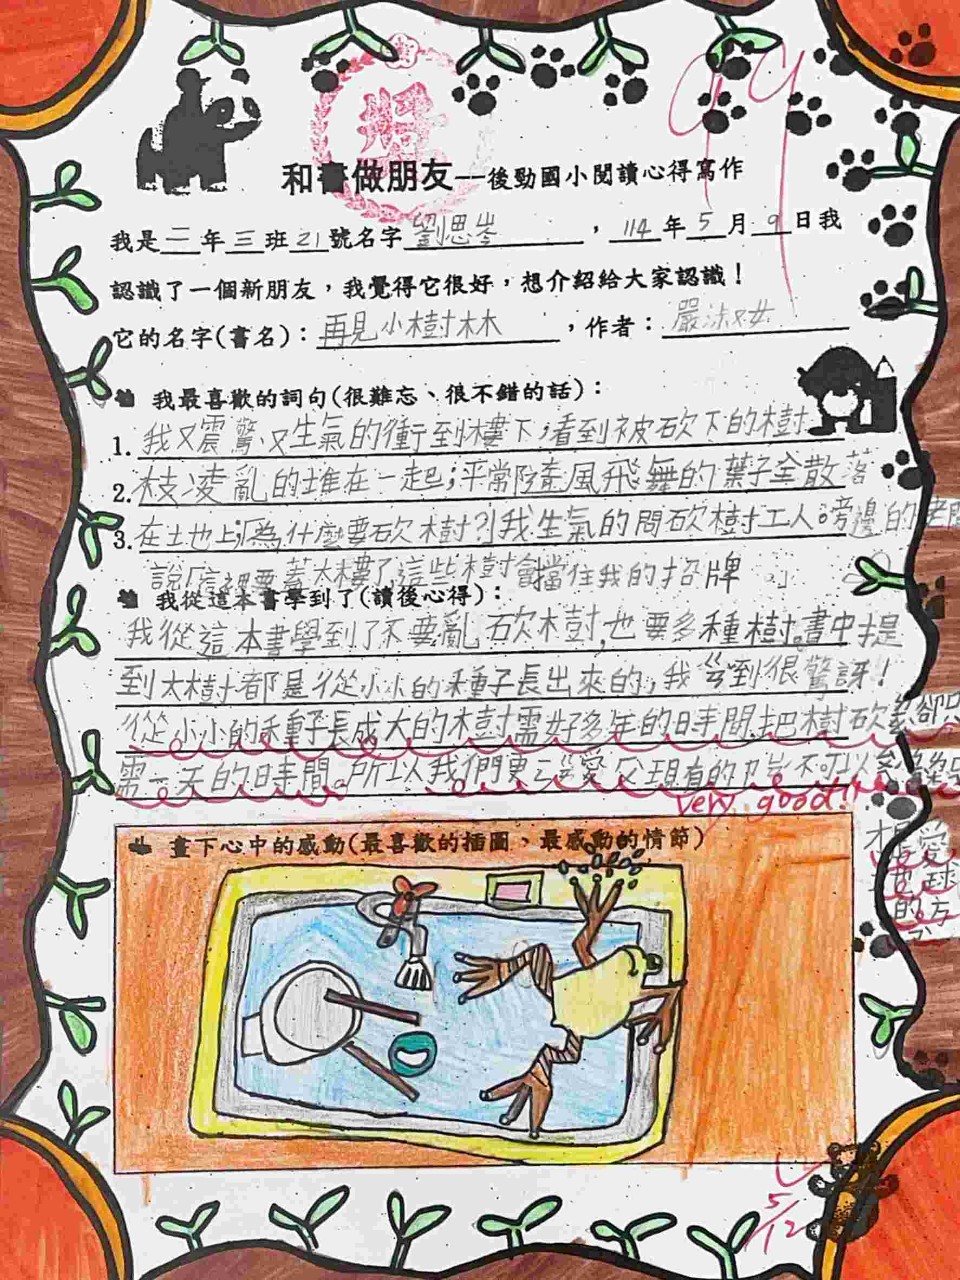 99
和書做朋友—後勁國小閱讀心得寫作
我是二年三班21號名字劉思岑，114年5月9日我
認識了一個新朋友，我覺得它很好，想介紹給大家認識！
它的名字(書名)：再見小樹林，作者：嚴淑女
我最喜歡的詞句(很難忘、很不錯的話)：
1. 我又震驚又生氣的衝到樓下，看到被砍下的樹
2. 枝凌亂的堆在一起；平常隨風飛舞的葉子全散落
3. 在土地上，為什麼要砍樹?我生氣的問砍樹工人，旁邊的
說「這裡要蓋大樓了這些樹會擋住我的招牌。」
我從這本書學到了(讀後心得)：
我從這本書學到了不要亂砍樹，也要多種樹。書中提
到大樹都是從小小的種子長出來的，我ㄍㄢˇ到很驚訝！
從小小的種子長成大的樹需好多年的時間把樹砍卻只
需一天的時間。所以我們要愛現有的不可以
very good!!
才是愛
地球
的方
畫下心中的感動(最喜歡的插圖、最感動的情節)
5/12